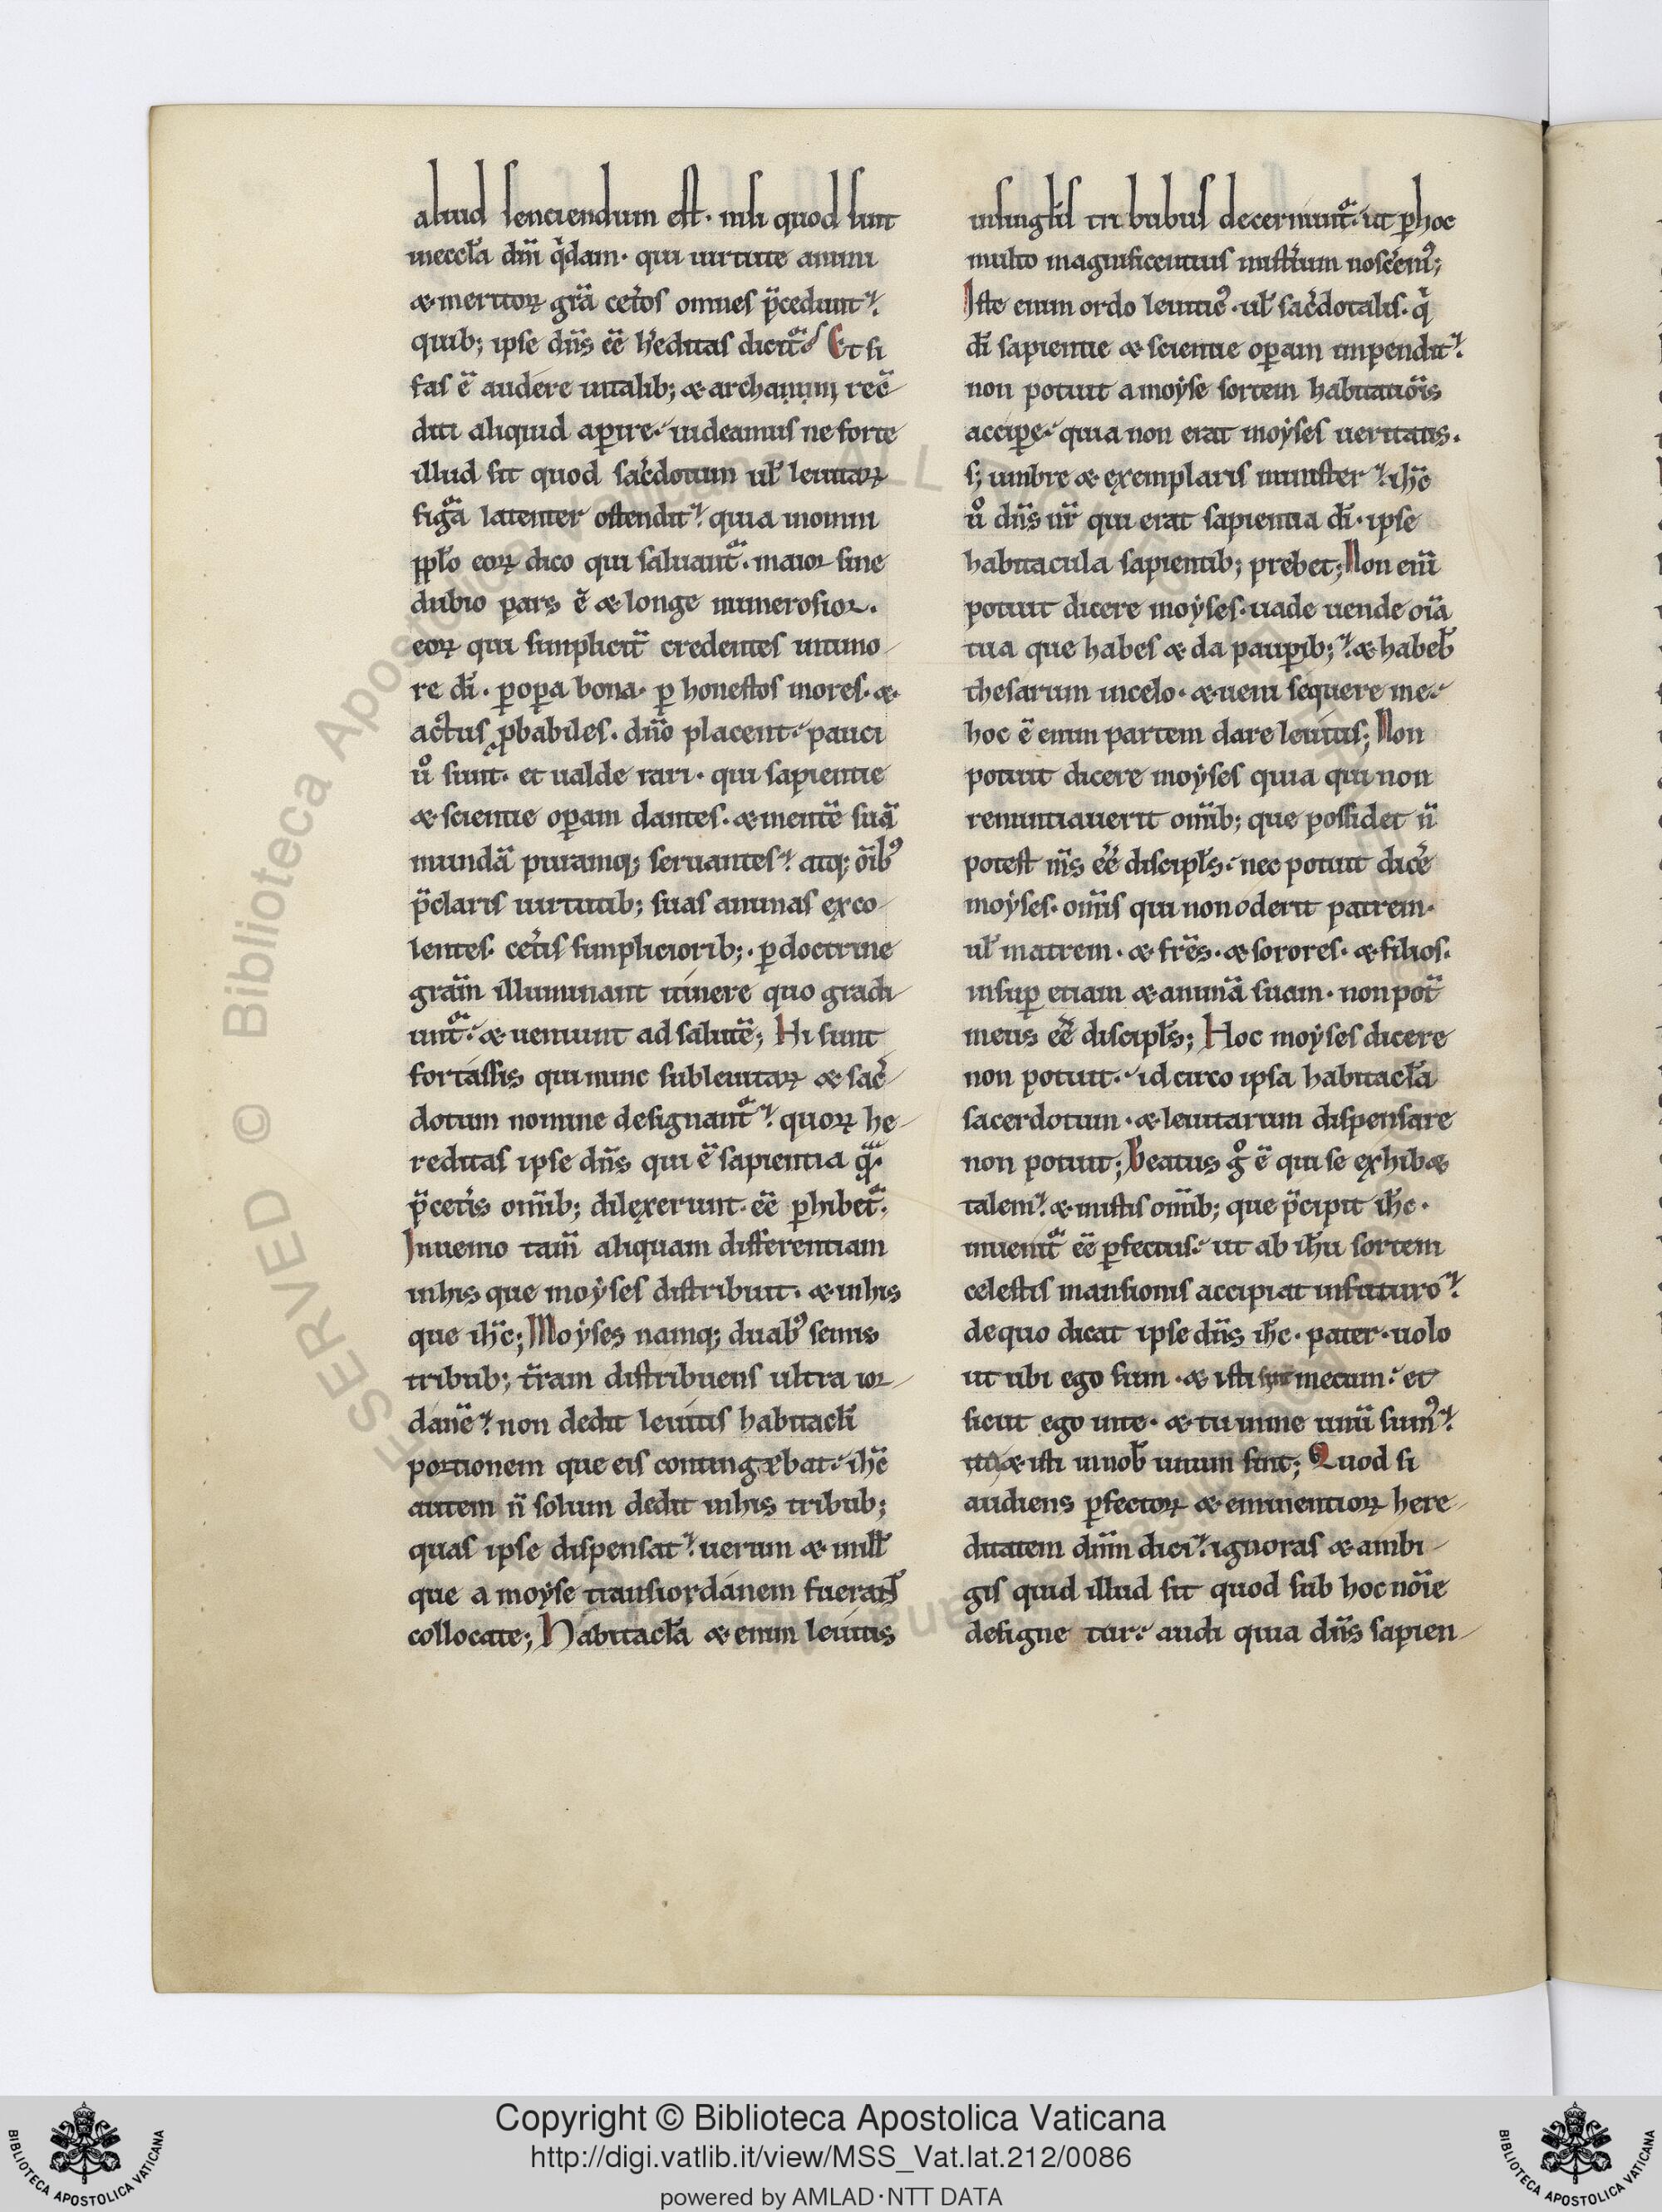 aliud senciendum est· nisi quod sunt
ineccła dnĩ q̇dam· qui uirtute animi
& meritoꝝ grã cet̃os omnes p̃cedunt·
quib; ipse dñs ẽẽ h̃editas dicit̃· Et si
fas ẽ audere inalib; & archanum recẽ
diti aliquid aꝑire· uideamus ne forte
illud sit quod sac̃dotum ul̃ leuitaꝝ
figãa latenter ostendit· quia inomni
ppl̃o eoꝝ dico qui saluant̃· maior sine
dubio pars ẽ & longe numerosior·
eoꝝ qui simplicit̃ credentes intimo
re dĩ· ꝑ oꝑa bona· ꝑ honestos mores· &
actus ꝓbabiles· dño placent· pauci
uº sunt· et ualde rari· qui sapientie
& scientie oꝑam dantes· & mentẽ suã
mundã puramq; seruantes· atq; oĩbꝰ
p̃claris uirtutib; suas animas exco
lentes· cet̃is simpliciorib;· ꝑ doctrine
grãm illuminant itinere quo gradi
unt̃· & ueniunt ad salutẽ; Hi sunt
fortassis qui nunc sub leuitaꝝ & sac̃
dotum nomine designant̃· quoꝝ he
reditas ipse dñs qui ẽ sapientia q̃·
p̃cet̃is omĩb; dilexerunt· ẽẽ ꝑhibet̃·
Inuenio tam̃ aliquam differentiam
inhis que moẏses distribuit· & inhis
que ihc̃; Moẏses namq; duabꝰ semis
tribub; t̃ram distribuens ultra ior
danẽ· non dedit leuitis habitacl̃i
portionem que eis conting&bat· ihc̃
autem ñ solum dedit inhis tribub;
quas ipse dispensat· uerum & in ill̃
que a moẏse transiordanem fuerant̃
collocate; Habitacl̃a & enim leuitis
insingl̃is tribubus decernunt̃· ut ꝑ hoc
multo magnificentius mist̃ium nosc̃emꝰ;
Iste enim ordo leuiticꝰ· ul̃ sac̃dotalis· q̇
dĩ sapientie & scientie oꝑam impendit·
non potuit a moẏse sortem habitatiõis
acciꝑe· quia non erat moẏses ueritatis·
s; umbre & exemplaris minister· ihc̃
uº dñs nr̃ qui erat sapientia dĩ· ipse
habitacula sapientib; prebet; Non enĩ
potuit dicere moẏses· uade uende oĩa
tua que habes & da pauꝑib;· & habeb̃
thesarum incelo· & ueni sequere me·
hoc ẽ enim partem dare leuitis; Non
potuit dicere moẏses quia qui non
renuntiauerit omĩb; que possidet ñ
potest m̃s ẽẽ discipl̃s· nec potuit dic̃e
moẏses· omĩs qui non oderit patrem·
ul̃ matrem· & fr̃es· & sorores· & filios·
insuꝑ etiam & animã suam· non pot̃
meus ẽẽ discipl̃s; Hoc moẏses dicere
non potuit· id circo ipsa habitacl̃a
sacerdotum· & leuitarum dispensare
non potuit; Beatus gº ẽ qui se exhib&
talem· & in istis omĩb; que p̃cipit ihc̃·
inuenit̃ ẽẽ ꝑfectus· ut ab ihũ sortem
celestis mansionis accipiat infuturo·
de quo dicat ipse dñs ihc̃· pater· uolo
ut ubi ego sum· & isti sint mecum· et
sicut ego in te· & tu in me unũ sumꝰ·
ita & isti in nob̃ unum sint; Quod si
audiens ꝑfectoꝝ & eminentioꝝ here
ditatem dnĩm dici· ignoras & ambi
gis quid illud sit quod sub hoc nõie
designe tur· audi quia dñs sapien
Copyright © Biblioteca Apostolica Vaticana
http://digi.vatlib.it/view/MSS_Vat.lat.212/0086
powered by AMLAD·NTT DATA
BIBLIOTECA APOSTOLICA VATICANA
BIBLIOTECA APOSTOLICA VATICANA